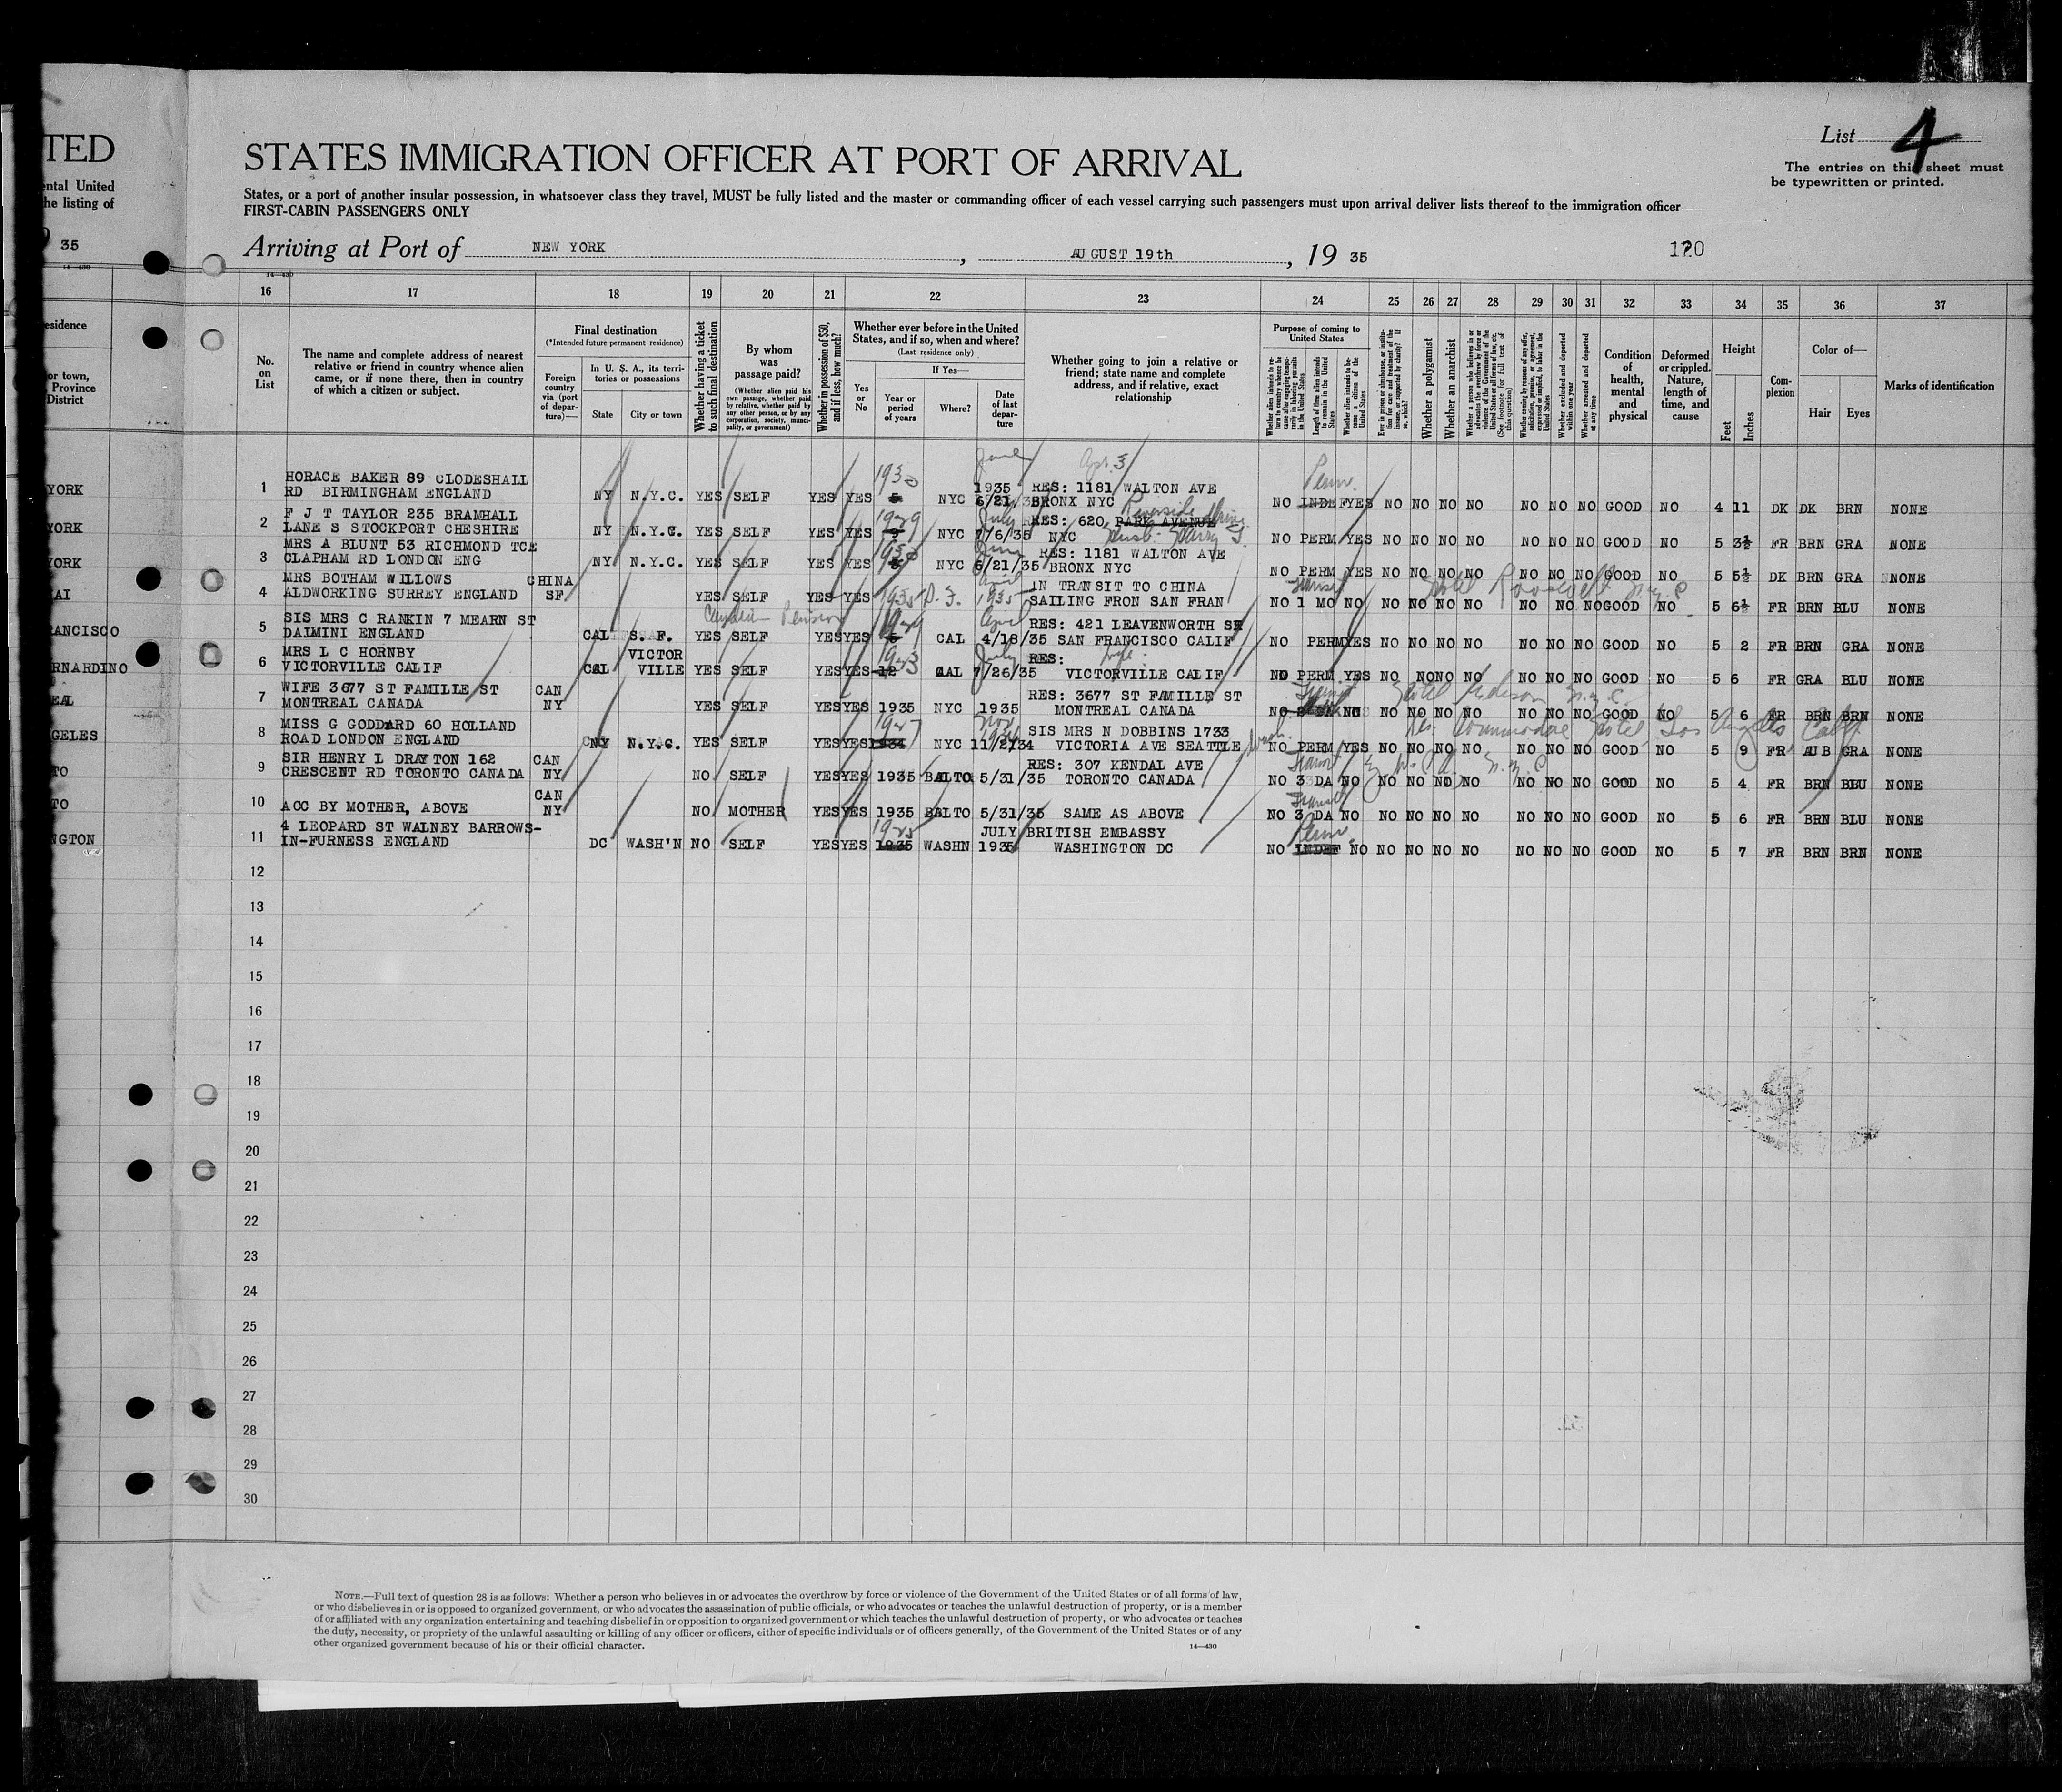 TED
ental United
he listing of
35
14—430
esidence
or town,
Province
District
YORK
YORK
YORK
AI
RANCISCO
RNARDINO
EAL
GELES
TO
TO
NGTON
List 4
The entries on this sheet must
be typewritten or printed.
STATES IMMIGRATION OFFICER AT PORT OF ARRIVAL
States, or a port of another insular possession, in whatsoever class they travel, MUST be fully listed and the master or commanding officer of each vessel carrying such passengers must upon arrival deliver lists thereof to the immigration officer
FIRST-CABIN PASSENGERS ONLY
Arriving at Port of NEW YORK, AUGUST 19th, 19 35
120
14—430
16 17 18 19 20 21 22 23 24 25 26 27 28 29 30 31 32 33 34 35 36 37
No.
on
List
The name and complete address of nearest
relative or friend in country whence alien
came, or if none there, then in country
of which a citizen or subject.
Final destination
(*Intended future permanent residence)
Foreign
country
via (port
of depar-
ture)—
In U. S. A., its terri-
tories or possessions
State City or town
Whether having a ticket
to such final destination
By whom
was
passage paid?
(Whether alien paid his
own passage, whether paid
by relative, whether paid by
any other person, or by any
corporation, society, munici-
pality, or government)
Whether in possession of $50,
and if less, how much?
Whether ever before in the United
States, and if so, when and where?
(Last residence only)
Yes
or
No
If Yes—
Year or
period
of years
Where?
Date
of last
depar-
ture
Whether going to join a relative or
friend; state name and complete
address, and if relative, exact
relationship
Purpose of coming to
United States
Whether alien intends to re-
turn to country whence he
came after engaging tempo-
rarily in laboring pursuits
in the United States
Length of time alien intends
to remain in the United
States
Whether alien intends to be-
come a citizen of the
United States
Ever in prison or almshouse, or institu-
tion for care and treatment of the
insane, or supported by charity? If
so, which?
Whether a polygamist
Whether an anarchist
(See footnote for full text of
this question)
Whether excluded and deported
within one year
Whether arrested and deported
at any time
Condition
of
health,
mental
and
physical
Deformed
or crippled.
Nature,
length of
time, and
cause
Height
Feet Inches
Com-
plexion
Color of—
Hair Eyes
Marks of identification
June Apt. 3 Perm.
1930
HORACE BAKER 89 CLODESHALL 1935 RES: 1181 WALTON AVE
1 RD BIRMINGHAM ENGLAND NY N.Y.C. YES SELF YES YES 5 NYC 6/21/35 BRONX NYC NO INDEF YES NO NO NO NO NO NO NO GOOD NO 4 11 DK DK BRN NONE
F J T TAYLOR 235 BRAMHALL 1929 July RES: 620 PARK AVENUE Riverside Drive
2 LANE S STOCKPORT CHESHIRE NY N.Y.C. YES SELF YES YES NYC 7/6/35 NYC Husb. Harry T. NO PERM YES NO NO NO NO NO NO NO GOOD NO 5 3½ FR BRN GRA NONE
MRS A BLUNT 53 RICHMOND TCE 1930 June RES: 1181 WALTON AVE
3 CLAPHAM RD LONDON ENG NY N.Y.C. YES SELF YES YES 5 NYC 6/21/35 BRONX NYC NO PERM YES NO NO NO NO NO NO NO GOOD NO 5 5½ DK BRN GRA NONE
MRS BOTHAM WILLOWS CHINA April IN TRANSIT TO CHINA Transit Hotel Roosevelt N.Y.C
4 ALDWORKING SURREY ENGLAND SF YES SELF YES YES 1935 S.F. 1935 SAILING FRON SAN FRAN NO 1 MO NO NO NO NO NO NO NO NO GOOD NO 5 6½ FR BRN BLU NONE
SIS MRS C RANKIN 7 MEARN ST April RES: 421 LEAVENWORTH ST
5 DAIMINI ENGLAND CAL S. F. YES SELF YES YES 5 CAL 4/18/35 SAN FRANCISCO CALIF NO PERM YES NO NO NO NO NO NO NO GOOD NO 5 2 FR BRN GRA NONE
MRS L C HORNBY VICTOR 1923 July RES: wife
6 VICTORVILLE CALIF CAL VILLE YES SELF YES YES 12 CAL 7/26/35 VICTORVILLE CALIF NO PERM YES NO NO NO NO NO NO NO GOOD NO 5 6 FR GRA BLU NONE
WIFE 3677 ST FAMILLE ST CAN RES: 3677 ST FAMILLE ST Transit Hotel Edison N.Y.C.
7 MONTREAL CANADA NY YES SELF YES YES 1935 NYC 1935 MONTREAL CANADA NO NO NO NO NO NO NO NO NO GOOD NO 5 6 FR BRN BRN NONE
MISS G GODDARD 60 HOLLAND 1927 Nov. 1934 SIS MRS N DOBBINS 1733 Res. Commodore Hotel, Los Angeles Calif.
8 ROAD LONDON ENGLAND NY N.Y.C. YES SELF YES YES 1934 NYC 11/2/34 VICTORIA AVE SEATTLE Wash. NO PERM YES NO NO NO NO NO NO NO GOOD NO 5 9 FR AUB GRA NONE
SIR HENRY L DRAYTON 162 CAN RES: 307 KENDAL AVE Transit N.Y.C
9 CRESCENT RD TORONTO CANADA NY NO SELF YES YES 1935 BALTO 5/31/35 TORONTO CANADA NO 3 DA NO NO NO NO NO NO NO NO GOOD NO 5 4 FR BRN BLU NONE
CAN Transit
10 ACC BY MOTHER, ABOVE NY NO MOTHER YES YES 1935 BALTO 5/31/35 SAME AS ABOVE NO 3 DA NO NO NO NO NO NO NO NO GOOD NO 5 6 FR BRN BLU NONE
4 LEOPARD ST WALNEY BARROWS- 1925 JULY BRITISH EMBASSY Perm.
11 IN-FURNESS ENGLAND DC WASH'N NO SELF YES YES 1935 WASHN 1935 WASHINGTON DC NO INDEF NO NO NO NO NO NO NO NO GOOD NO 5 7 FR BRN BRN NONE
12
13
14
15
16
17
18
19
20
21
22
23
24
25
26
27
28
29
30
NOTE.—Full text of question 28 is as follows: Whether a person who believes in or advocates the overthrow by force or violence of the Government of the United States or of all forms of law,
or who disbelieves in or is opposed to organized government, or who advocates the assassination of public officials, or who advocates or teaches the unlawful destruction of property, or is a member
of or affiliated with any organization entertaining and teaching disbelief in or opposition to organized government or which teaches the unlawful destruction of property, or who advocates or teaches
the duty, necessity, or propriety of the unlawful assaulting or killing of any officer or officers, either of specific individuals or of officers generally, of the Government of the United States or of any
other organized government because of his or their official character.
14—430